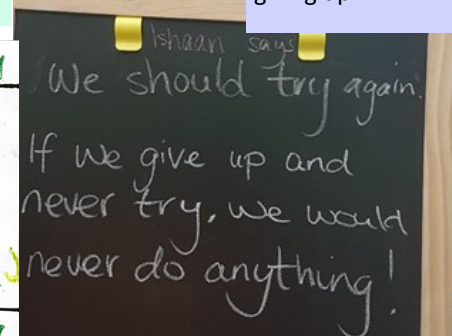 Ishaan says
We should try again.
If we give up and
never try, we would
never do anything!